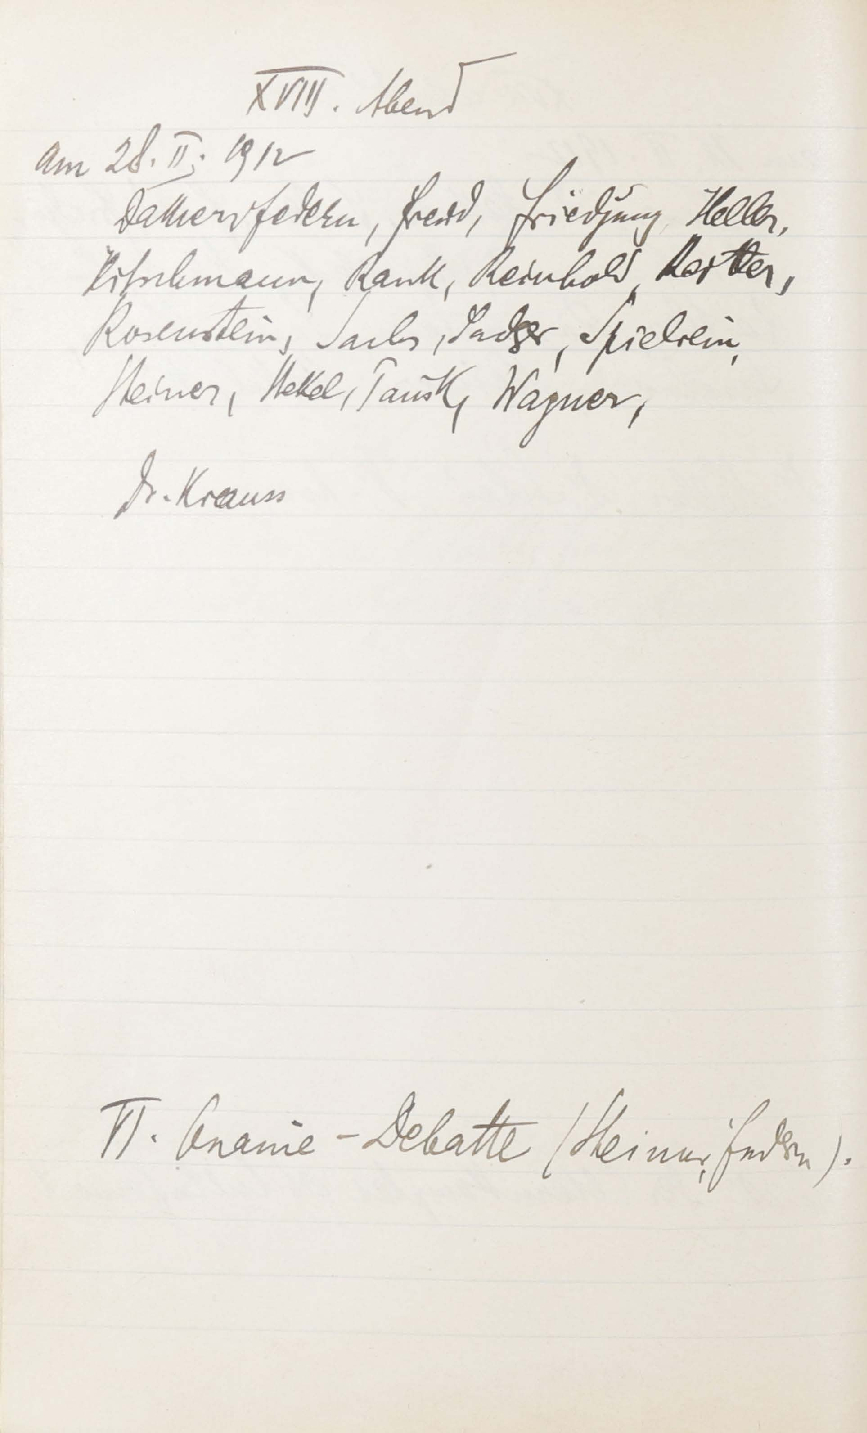 XVIII. Abend
am 28. II. 1912
Dattner, Federn, Freud, Friedjung, Heller,
Hitschmann, Rank, Reinhold, Reitler,
Rosenstein, Sachs, Sadger, Spielrein,
Steiner, Stekel, Tausk, Wagner,
Dr. Krauss
VI. Onanie-Debatte (Steiner, Federn).